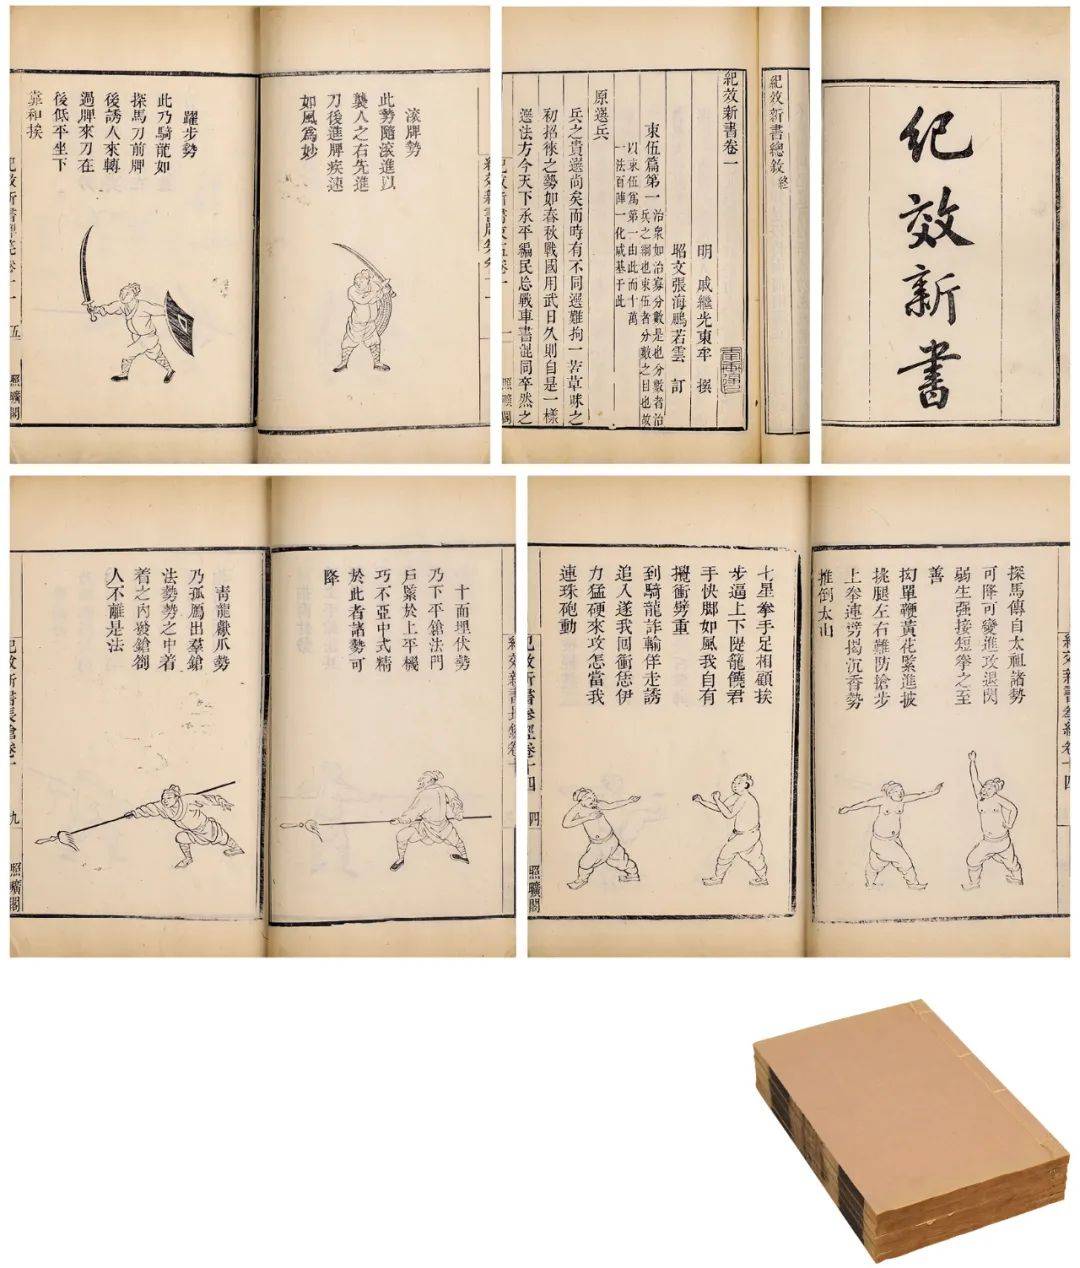 紀效新書
紀效新書總敘 終
紀效新書卷一
明 戚繼光東牟 撰
昭文張海鵬若雲 訂
束伍篇第一
治衆如治寡分數是也分數者治
兵之綱也束伍者分數之目也故
以束伍爲第一由此而十萬
一法百陣一化咸基于此
原選兵
兵之貴選尚矣而時有不同選難拘一若草昧之
初招徠之勢如春秋戰國用武日久則自是一樣
選法方今天下承平編民忘戰車書混同卒然之
紀效新書束伍卷一
一
照曠閣
滚牌勢
此勢隨滚進以
襲人之右先進
刀後進牌疾速
如風爲妙
躍步勢
此乃騎龍如
探馬刀前牌
後誘人來轉
過牌來刀在
後低平坐下
靠和挨
五
照曠閣
探馬傳自太祖諸勢
可降可變進攻退閃
弱生强接短拳之至
善
拗單鞭黃花緊進披
挑腿左右難防搶步
上拳連劈揭沉香勢
推倒太山
七星拳手足相顧挨
步逼上下隄籠饒君
手快脚如風我自有
攪衝劈重
到騎龍詐輸佯走誘
追入遂我回衝恁伊
力猛硬來攻怎當我
連珠砲動
紀效新書拳經卷十四
四
照曠閣
十面埋伏勢
乃下平鎗法門
戶緊於上平機
巧不亞中式精
於此者諸勢可
降
青龍獻爪勢
乃孤鴈出羣鎗
法勢勢之中着
着之內發鎗劄
人不離是法
紀效新書長鎗卷十
九
照曠閣